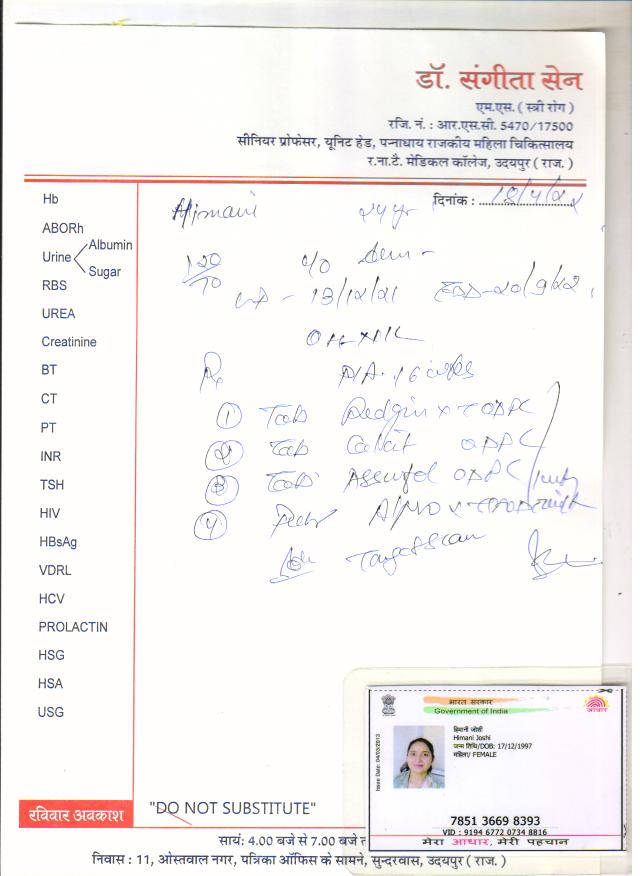 डॉ. संगीता सेन
एम.एस. ( स्त्री रोग )
रजि. नं. : आर.एस.सी. 5470/17500
सीनियर प्रोफेसर, यूनिट हेड, पन्नाधाय राजकीय महिला चिकित्सालय
र.ना.टै. मेडिकल कॉलेज, उदयपुर ( राज. )
दिनांक : 18/4/22
Himani 24 yr
120/70
13/12/21 EDD-20/9/22
Rx
① Tab
② Tab
③ Tab
④
Target Scan
Hb
ABORh
Urine Albumin
Sugar
RBS
UREA
Creatinine
BT
CT
PT
INR
TSH
HIV
HBsAg
VDRL
HCV
PROLACTIN
HSG
HSA
USG
रविवार अवकाश
"DO NOT SUBSTITUTE"
सायं: 4.00 बजे से 7.00 बजे
निवास : 11, ओस्तवाल नगर, पत्रिका ऑफिस के सामने, सुन्दरवास, उदयपुर ( राज. )
भारत सरकार
Government of India
आधार
Issue Date: 04/03/2013
हिमानी जोशी
Himani Joshi
जन्म तिथि/DOB: 17/12/1997
महिला/ FEMALE
7851 3669 8393
VID : 9194 6772 0734 8816
मेरा आधार, मेरी पहचान